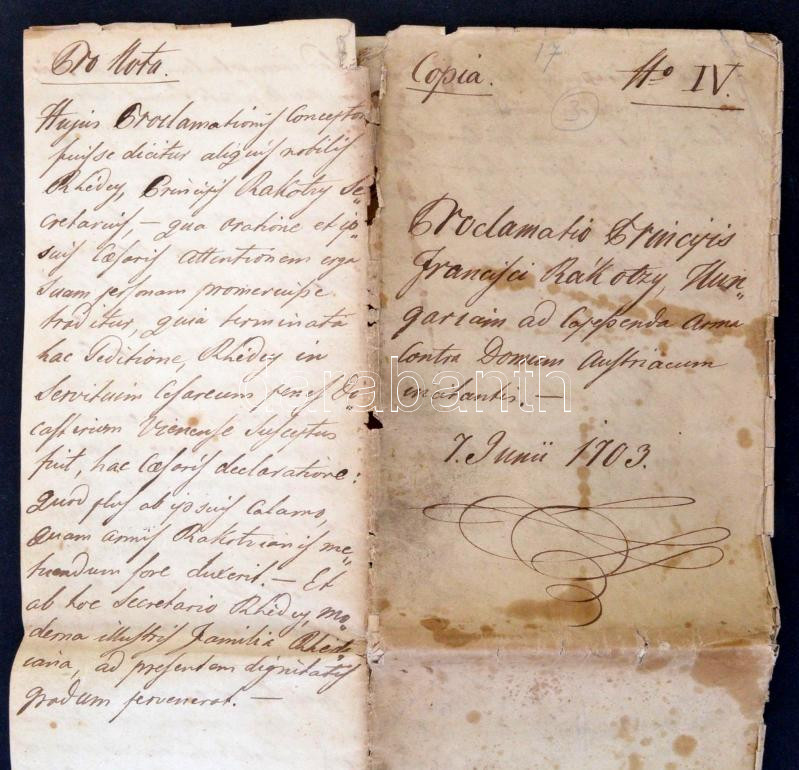 Pro Nota.
Hujus Proclamationis Conceptor
fuisse dicitur aliquis nobilis
Rhédey, Principis Rakotzy Se„
cretarius, – qua oratione et ip„
sius Cæsaris attentionem erga
suam personam promeruisse
traditur, quia terminata
hac Seditione, Rhédey in
servitium Cesareum penes Di„
casterium Vienense susceptus
fuit, hac Cæsaris declaratione:
quod plus ab ipsius Calamo,
quam armis Rakotzianis me„
tuendum fore duxerit. – Et
ab hoc Secretario Rhédey, mo„
derna illustris Familia Rhede„
iana, ad presentem dignitatis
gradum pervenerat. –
17
Copia. No IV.
3
Proclamatio Principis
Francisci Rákotzy, Hun„
gariam ad Capessenda Arma
Contra Domum Austriacum
incitantis. –
7. Junii 1703.
Darabanth